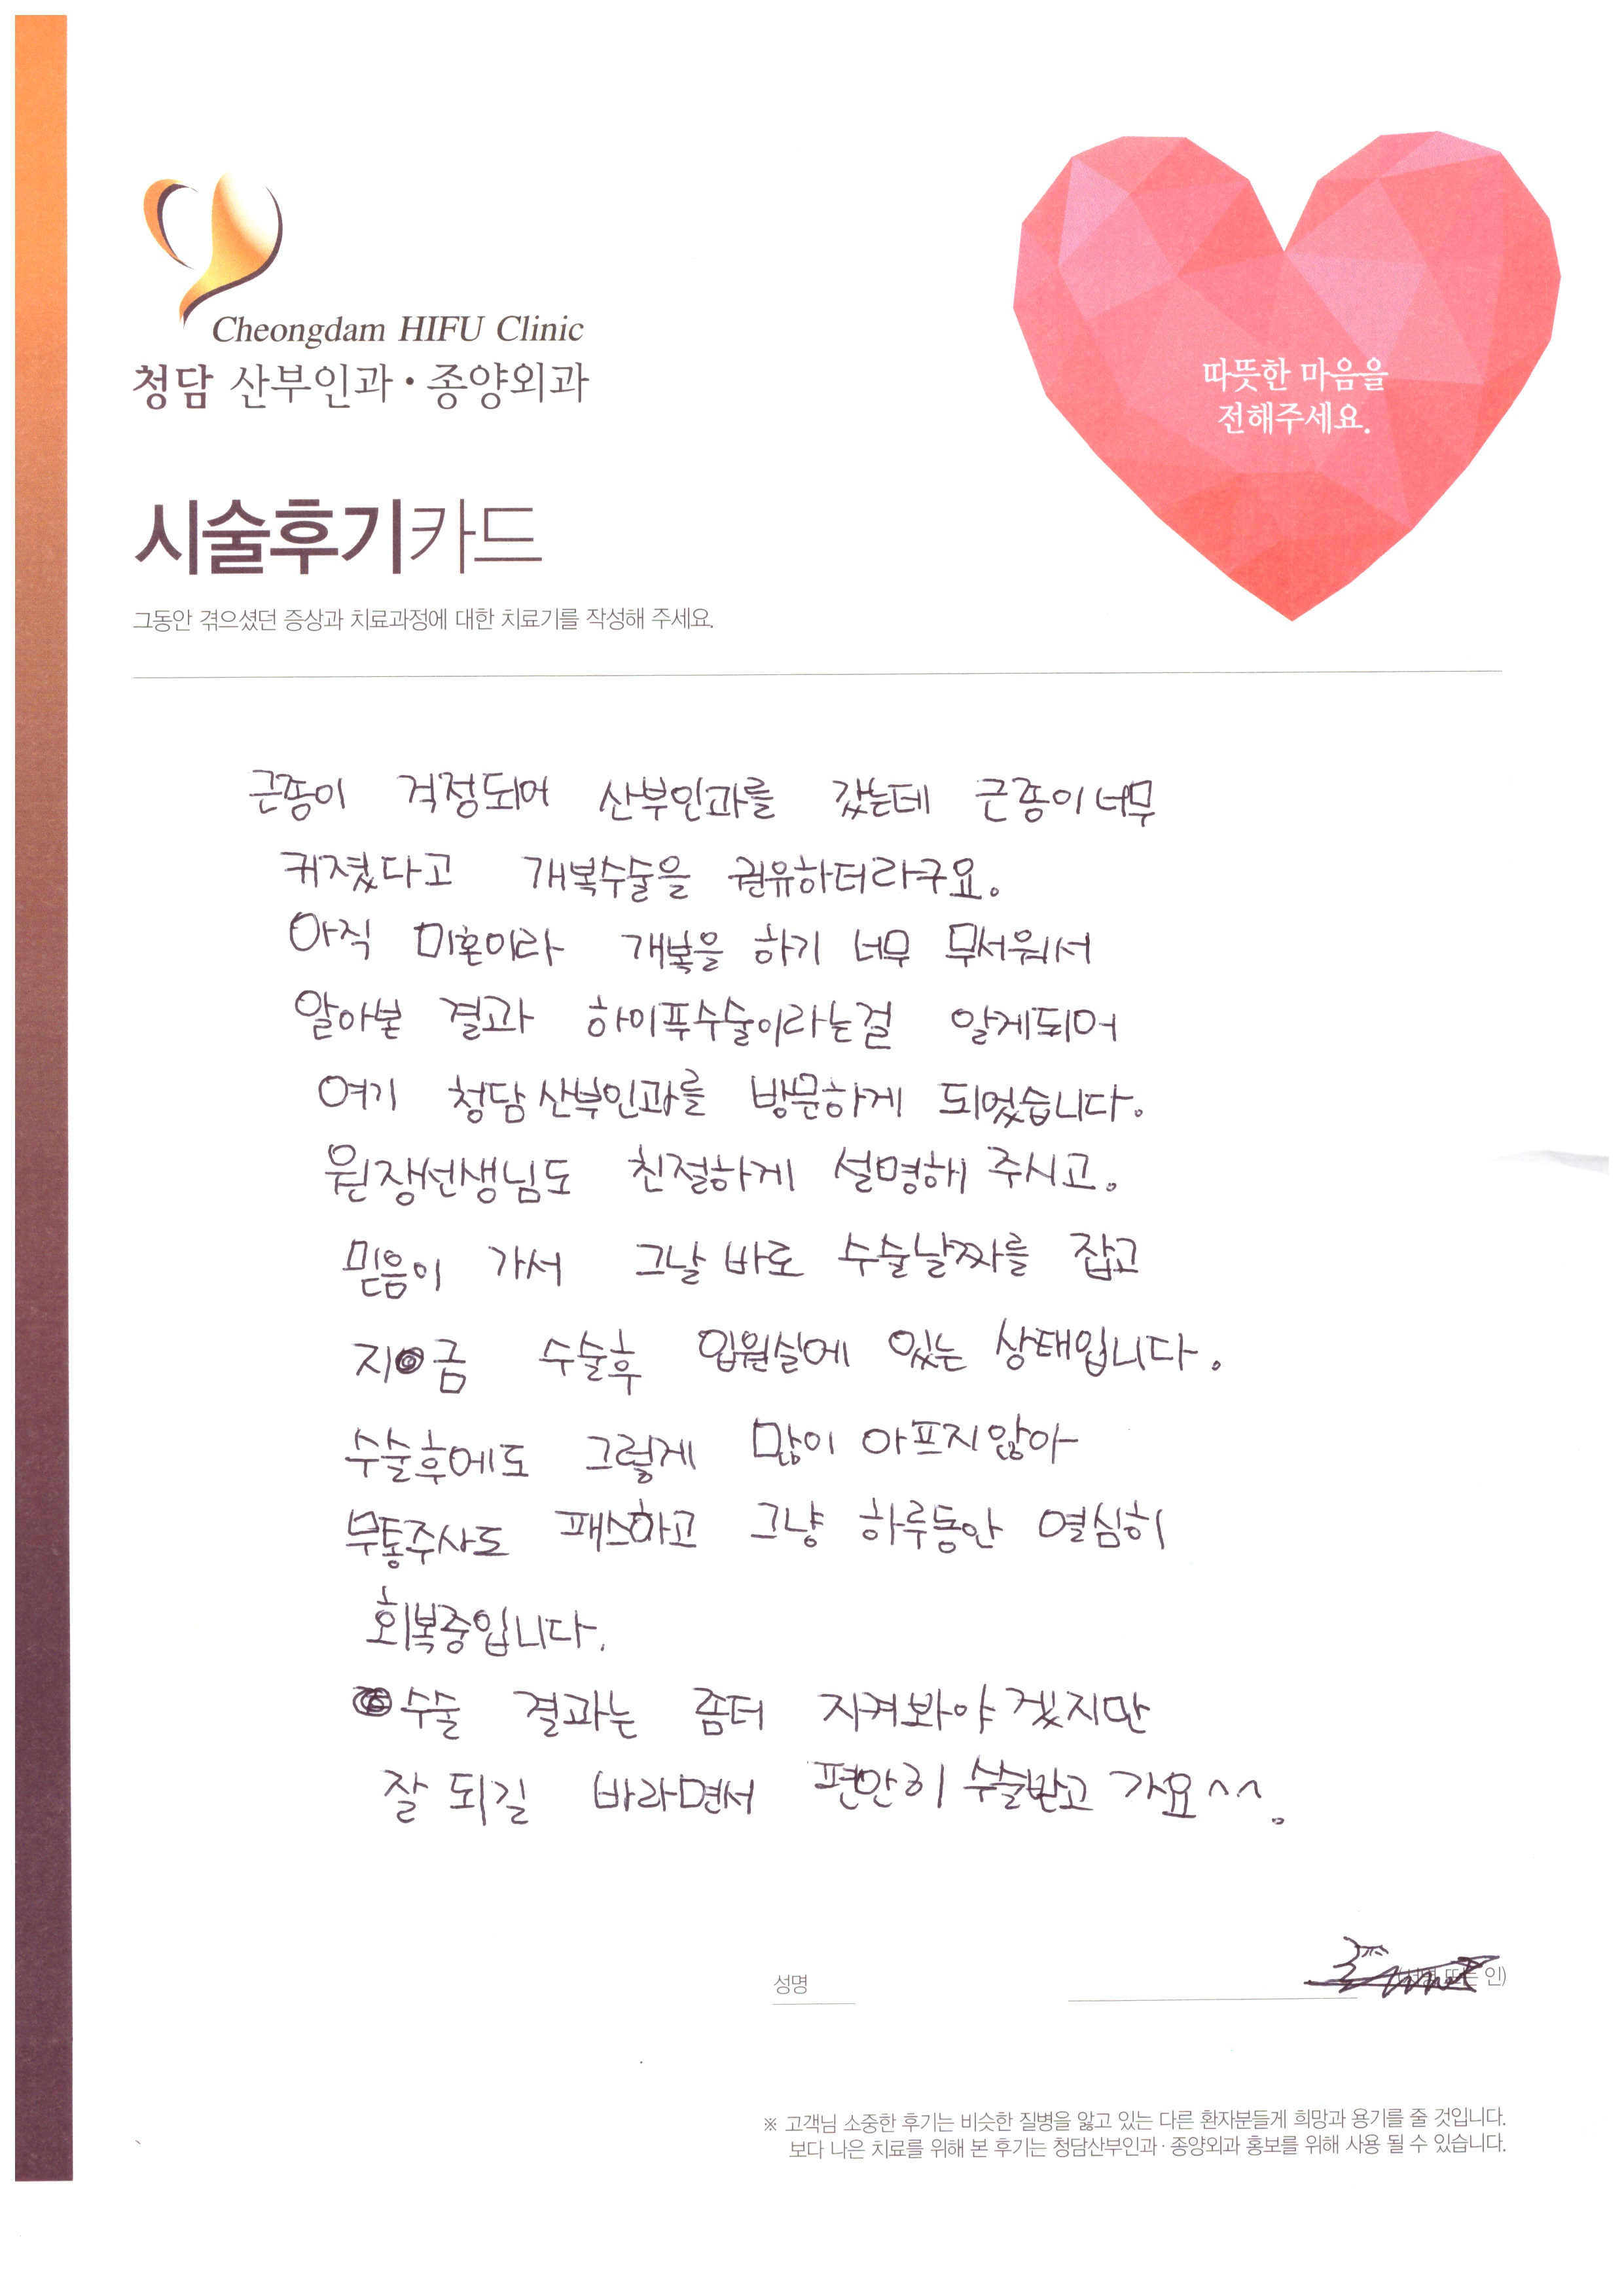 Cheongdam HIFU Clinic
청담 산부인과·종양외과
따뜻한 마음을
전해주세요.
시술후기카드
그동안 겪으셨던 증상과 치료과정에 대한 치료기를 작성해 주세요.
근종이 걱정되어 산부인과를 갔는데 근종이 너무
커졌다고 개복수술을 권유하더라구요.
아직 미혼이라 개복을 하기 너무 무서워서
알아본 결과 하이푸수술이라는걸 알게되어
여기 청담산부인과를 방문하게 되었습니다.
원쟁선생님도 친절하게 설명해 주시고.
믿음이 가서 그날 바로 수술날짜를 잡고
지금 수술후 입원실에 있는 상태입니다.
수술후에도 그렇게 많이 아프지않아
무통주사도 패스하고 그냥 하루동안 열심히
회복중입니다.
수술 결과는 좀더 지켜봐야겠지만
잘 되길 바라면서 편안히 수술받고 가요^^.
성명
인)
※ 고객님 소중한 후기는 비슷한 질병을 앓고 있는 다른 환자분들게 희망과 용기를 줄 것입니다.
보다 나은 치료를 위해 본 후기는 청담산부인과·종양외과 홍보를 위해 사용 될 수 있습니다.